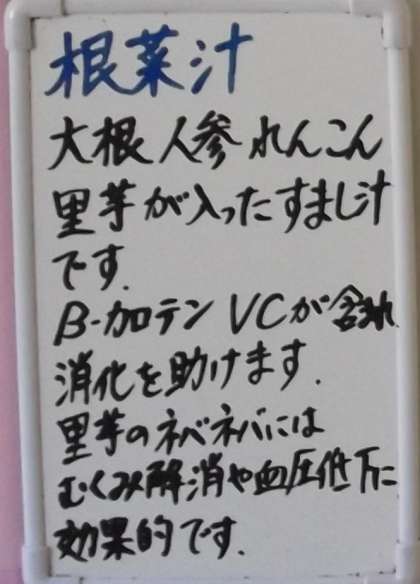 根菜汁
大根人参れんこん
里芋が入ったすまし汁
です.
β-カロテンVCが含まれ
消化を助けます.
里芋のネバネバには
むくみ解消や血圧低下に
効果的です.